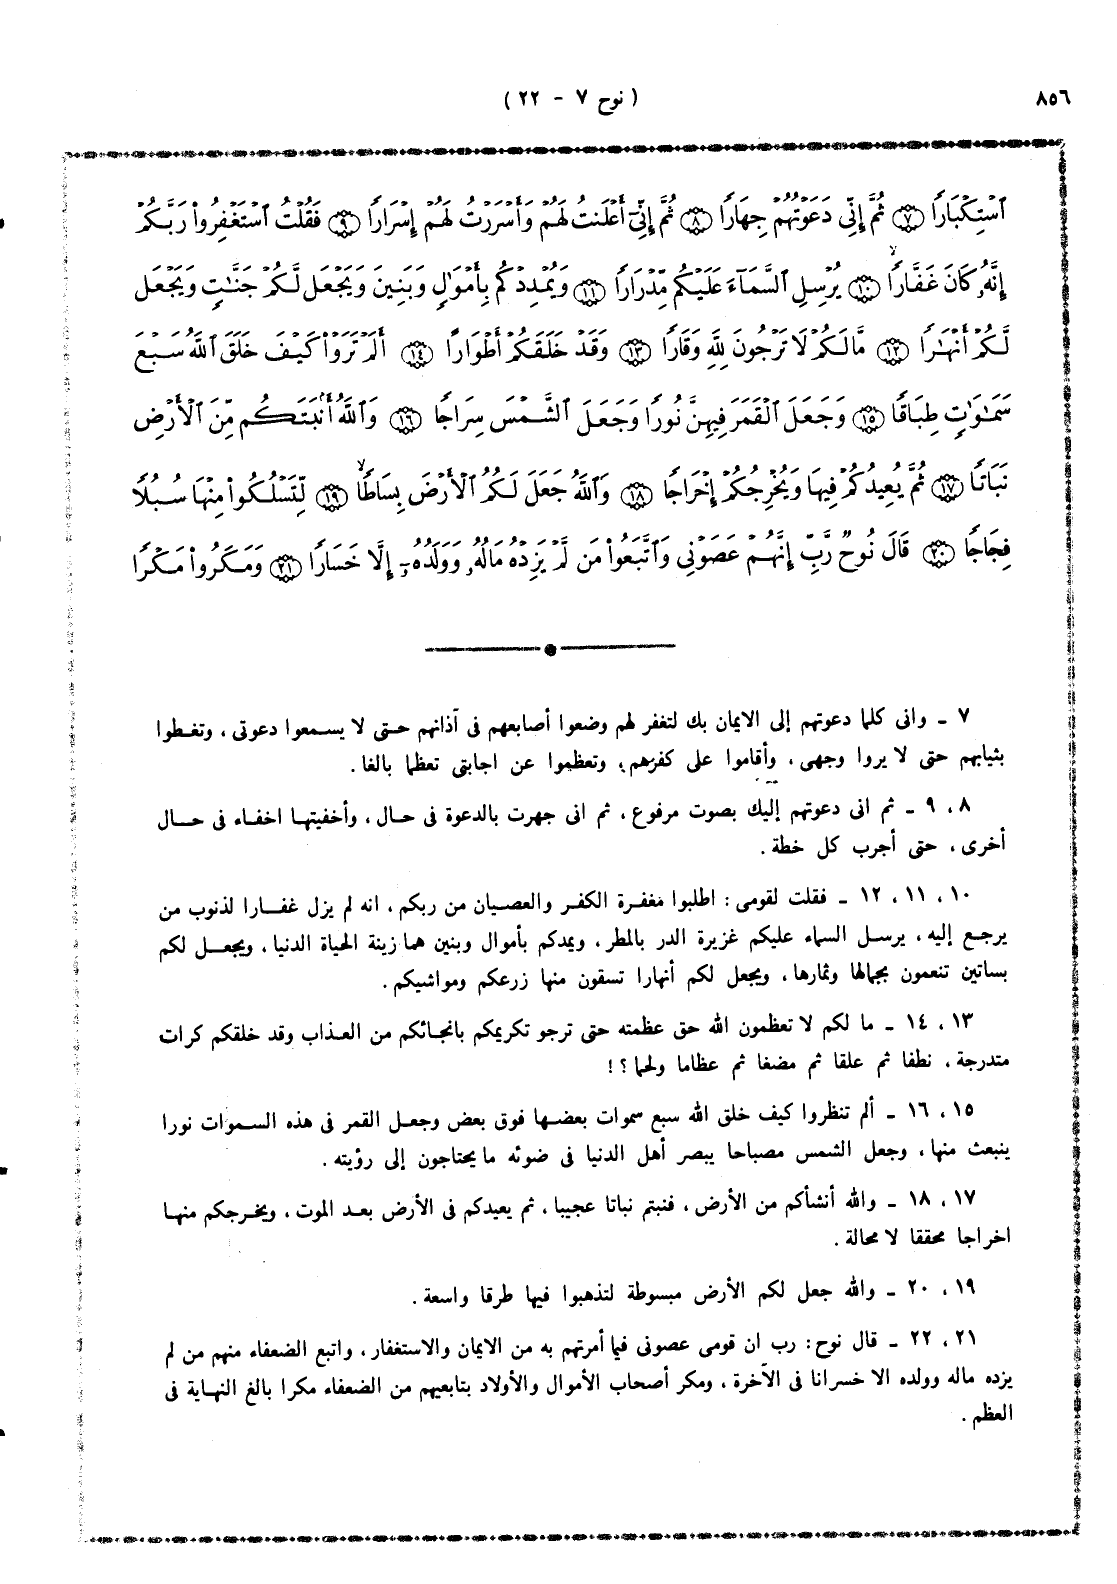 ٨٥٦
( نوح ٧ - ٢٢ )
ٱسْتِكْبَارًا ٧ ثُمَّ إِنِّى دَعَوْتُهُمْ جِهَارًا ٨ ثُمَّ إِنِّىٓ أَعْلَنتُ لَهُمْ وَأَسْرَرْتُ لَهُمْ إِسْرَارًا ٩ فَقُلْتُ ٱسْتَغْفِرُوا۟ رَبَّكُمْ
إِنَّهُۥ كَانَ غَفَّارًا ١٠ يُرْسِلِ ٱلسَّمَآءَ عَلَيْكُم مِّدْرَارًا ١١ وَيُمْدِدْكُم بِأَمْوَٰلٍ وَبَنِينَ وَيَجْعَل لَّكُمْ جَنَّٰتٍ وَيَجْعَل
لَّكُمْ أَنْهَٰرًا ١٢ مَّا لَكُمْ لَا تَرْجُونَ لِلَّهِ وَقَارًا ١٣ وَقَدْ خَلَقَكُمْ أَطْوَارًا ١٤ أَلَمْ تَرَوْا۟ كَيْفَ خَلَقَ ٱللَّهُ سَبْعَ
سَمَٰوَٰتٍ طِبَاقًا ١٥ وَجَعَلَ ٱلْقَمَرَ فِيهِنَّ نُورًا وَجَعَلَ ٱلشَّمْسَ سِرَاجًا ١٦ وَٱللَّهُ أَنۢبَتَكُم مِّنَ ٱلْأَرْضِ
نَبَاتًا ١٧ ثُمَّ يُعِيدُكُمْ فِيهَا وَيُخْرِجُكُمْ إِخْرَاجًا ١٨ وَٱللَّهُ جَعَلَ لَكُمُ ٱلْأَرْضَ بِسَاطًا ١٩ لِّتَسْلُكُوا۟ مِنْهَا سُبُلًا
فِجَاجًا ٢٠ قَالَ نُوحٌ رَّبِّ إِنَّهُمْ عَصَوْنِى وَٱتَّبَعُوا۟ مَن لَّمْ يَزِدْهُ مَالُهُۥ وَوَلَدُهُۥٓ إِلَّا خَسَارًا ٢١ وَمَكَرُوا۟ مَكْرًا
٧ ـ وانى كلما دعوتهم إلى الايمان بك لتغفر لهم وضعوا أصابعهم فى آذانهم حتى لا يسمعوا دعوتى ، وتغطوا
بثيابهم حتى لا يروا وجهى ، وأقاموا على كفرهم ، وتعظموا عن اجابتى تعظما بالغا .
٨ ، ٩ ـ ثم انى دعوتهم إليك بصوت مرفوع ، ثم انى جهرت بالدعوة فى حال ، وأخفيتها اخفاء فى حال
أخرى ، حتى أجرب كل خطة .
١٠ ، ١١ ، ١٢ ـ فقلت لقومى : اطلبوا مغفرة الكفر والعصيان من ربكم ، انه لم يزل غفارا لذنوب من
يرجع إليه ، يرسل السماء عليكم غزيرة الدر بالمطر ، ويمدكم بأموال وبنين هما زينة الحياة الدنيا ، ويجعل لكم
بساتين تنعمون بجمالها وثمارها ، ويجعل لكم أنهارا تسقون منها زرعكم ومواشيكم .
١٣ ، ١٤ ـ ما لكم لا تعظمون الله حق عظمته حتى ترجو تكريمكم بانجائكم من العذاب وقد خلقكم كرات
متدرجة ، نطفا ثم علقا ثم مضغا ثم عظاما ولحما ؟ !
١٥ ، ١٦ ـ ألم تنظروا كيف خلق الله سبع سموات بعضها فوق بعض وجعل القمر فى هذه السموات نورا
ينبعث منها ، وجعل الشمس مصباحا يبصر أهل الدنيا فى ضوئه ما يحتاجون إلى رؤيته .
١٧ ، ١٨ ـ والله أنشأكم من الأرض ، فنبتم نباتا عجيبا ، ثم يعيدكم فى الأرض بعد الموت ، ويخرجكم منها
اخراجا محققا لا محالة .
١٩ ، ٢٠ ـ والله جعل لكم الأرض مبسوطة لتذهبوا فيها طرقا واسعة .
٢١ ، ٢٢ ـ قال نوح : رب ان قومى عصونى فيما أمرتهم به من الايمان والاستغفار ، واتبع الضعفاء منهم من لم
يزده ماله وولده الا خسرانا فى الآخرة ، ومكر أصحاب الأموال والأولاد بتابعيهم من الضعفاء مكرا بالغ النهاية فى
العظم .